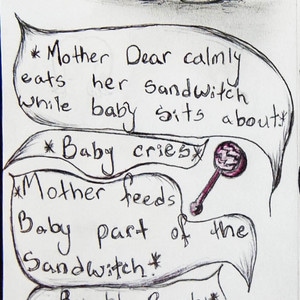 *Mother Dear calmly
eats her sandwitch
while baby sits about*
*Baby cries*
*Mother feeds
Baby part of the
Sandwitch*